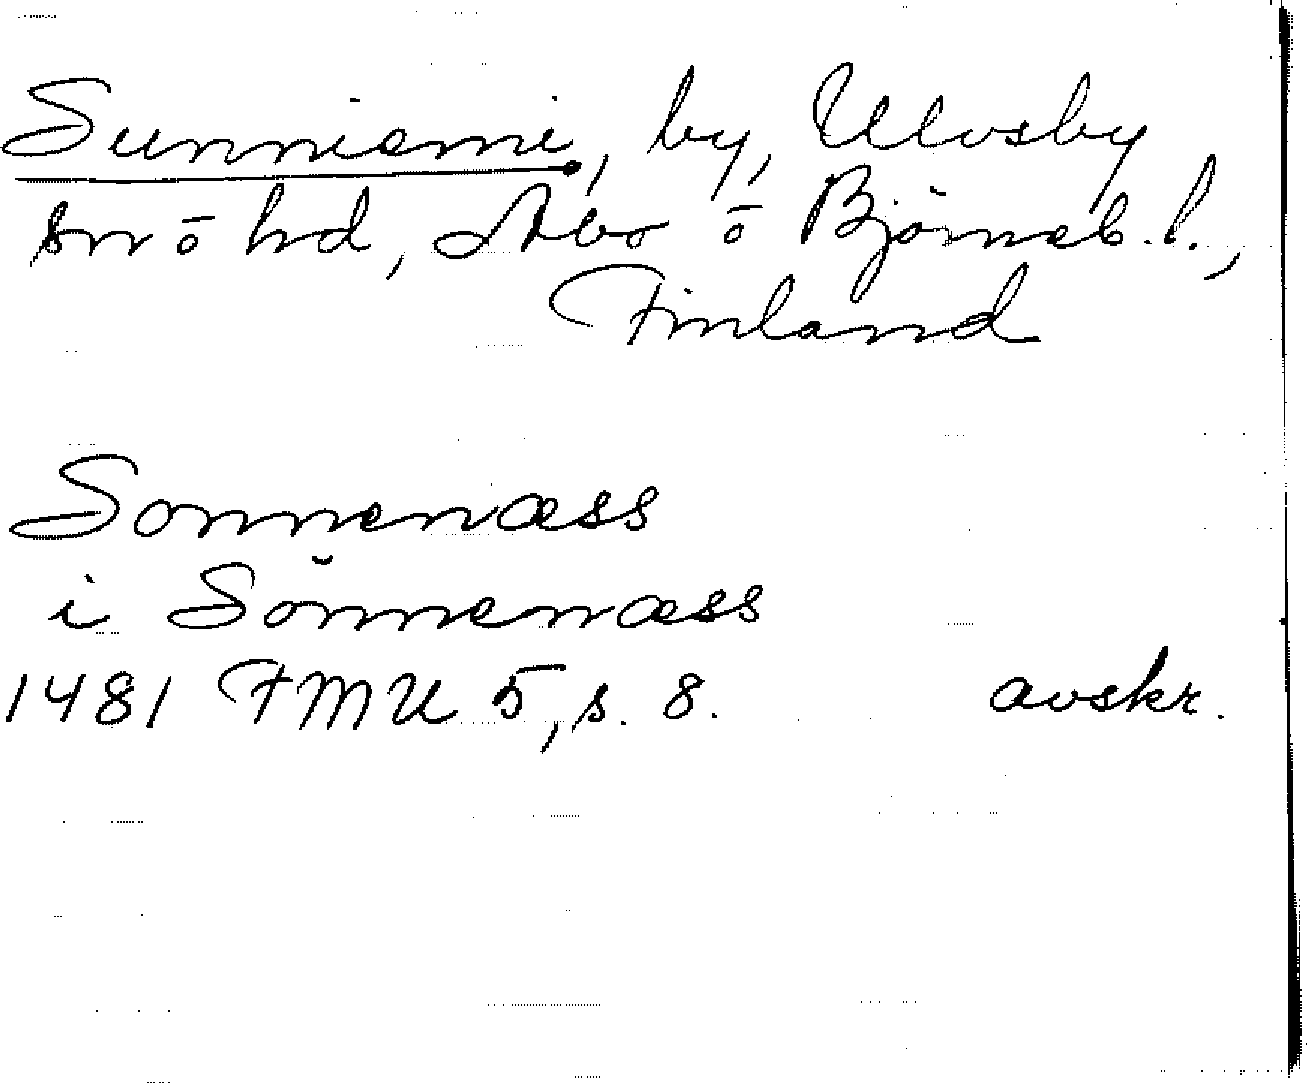 Sunniemi, by, Ulvsby
sn ō hd, Åbo ō Björneb. l.,
Finland
Sonnenæss
i Sönnenæss
1481 FMU 5, s. 8. avskr.